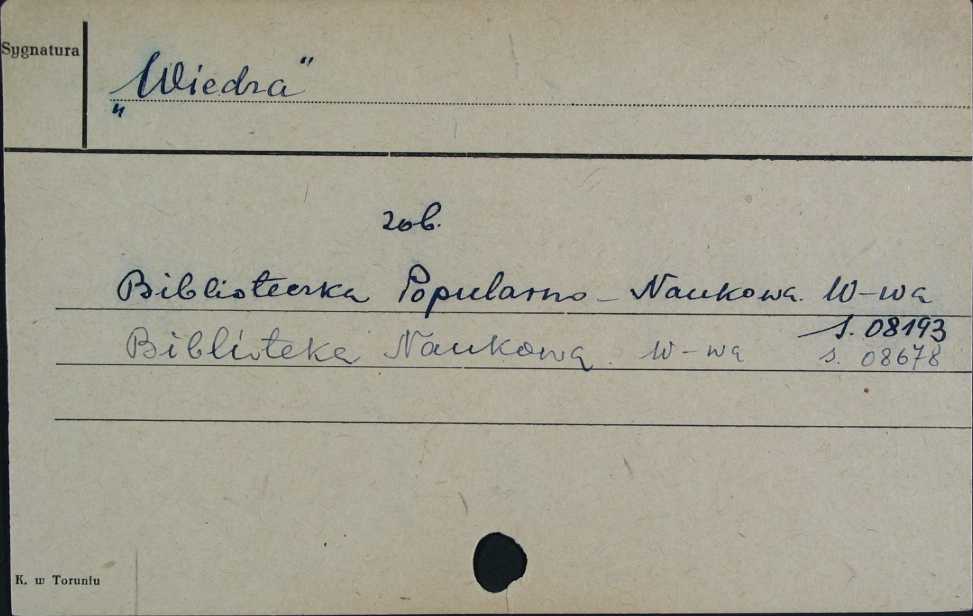 Sygnatura
„Wiedza"
zob.
Biblioteczka Popularno-Naukowa. W-wa
S. 08193
Biblioteka Naukowa. W-wa s. 08678
K. w Toruniu